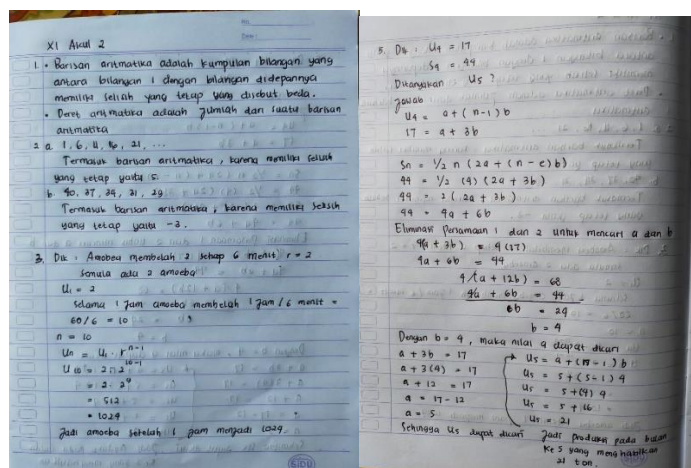 No.
Date:
XI Akul 2
1. • Barisan aritmatika adalah kumpulan bilangan yang
antara bilangan 1 dengan bilangan didepannya
memiliki selisih yang tetap yang disebut beda.
• Deret aritmatika adalah jumlah dari suatu barisan
aritmatika
2 a. 1, 6, 11, 16, 21, ...
Termasuk barisan aritmatika, karena memiliki selisih
yang tetap yaitu 5.
b. 40, 37, 34, 31, 29
Termasuk barisan aritmatika, karena memiliki selisih
yang tetap yaitu -3.
3. Dik : Amoeba membelah 2 setiap 6 menit, r = 2
Semula ada 2 amoeba
U1 = 2
Selama 1 jam amoeba membelah 1 jam / 6 menit =
60/6 = 10
n = 10
Un = U1 . r^n-1
U10 = 2 . 2^10-1
= 2 . 2^9
= 512
= 1024
Jadi amoeba setelah 1 jam menjadi 1024.
SIDU
5. Dik : U4 = 17
S4 = 44
Ditanyakan U5 ?
Jawab
U4 = a + (n-1) b
17 = a + 3b
Sn = 1/2 n (2a + (n - 1) b)
44 = 1/2 (4) (2a + 3b)
44 = 2 (2a + 3b)
44 = 4a + 6b
Eliminasi Persamaan 1 dan 2 untuk mencari a dan b
4(a + 3b) = 4 (17)
4a + 6b = 44
4(a + 12b) = 68
4a + 6b = 44 -
6b = 24
b = 4
Dengan b = 4, maka nilai a dapat dicari
a + 3b = 17
a + 3(4) = 17
a + 12 = 17
a = 17 - 12
a = 5
Sehingga U5 dapat dicari
U5 = a + (n - 1) b
U5 = 5 + (5-1) 4
U5 = 5 + (4) 4
U5 = 5 + 16
U5 = 21
Jadi produksi pada bulan
ke 5 yang menghasilkan
21 ton.
SIDU